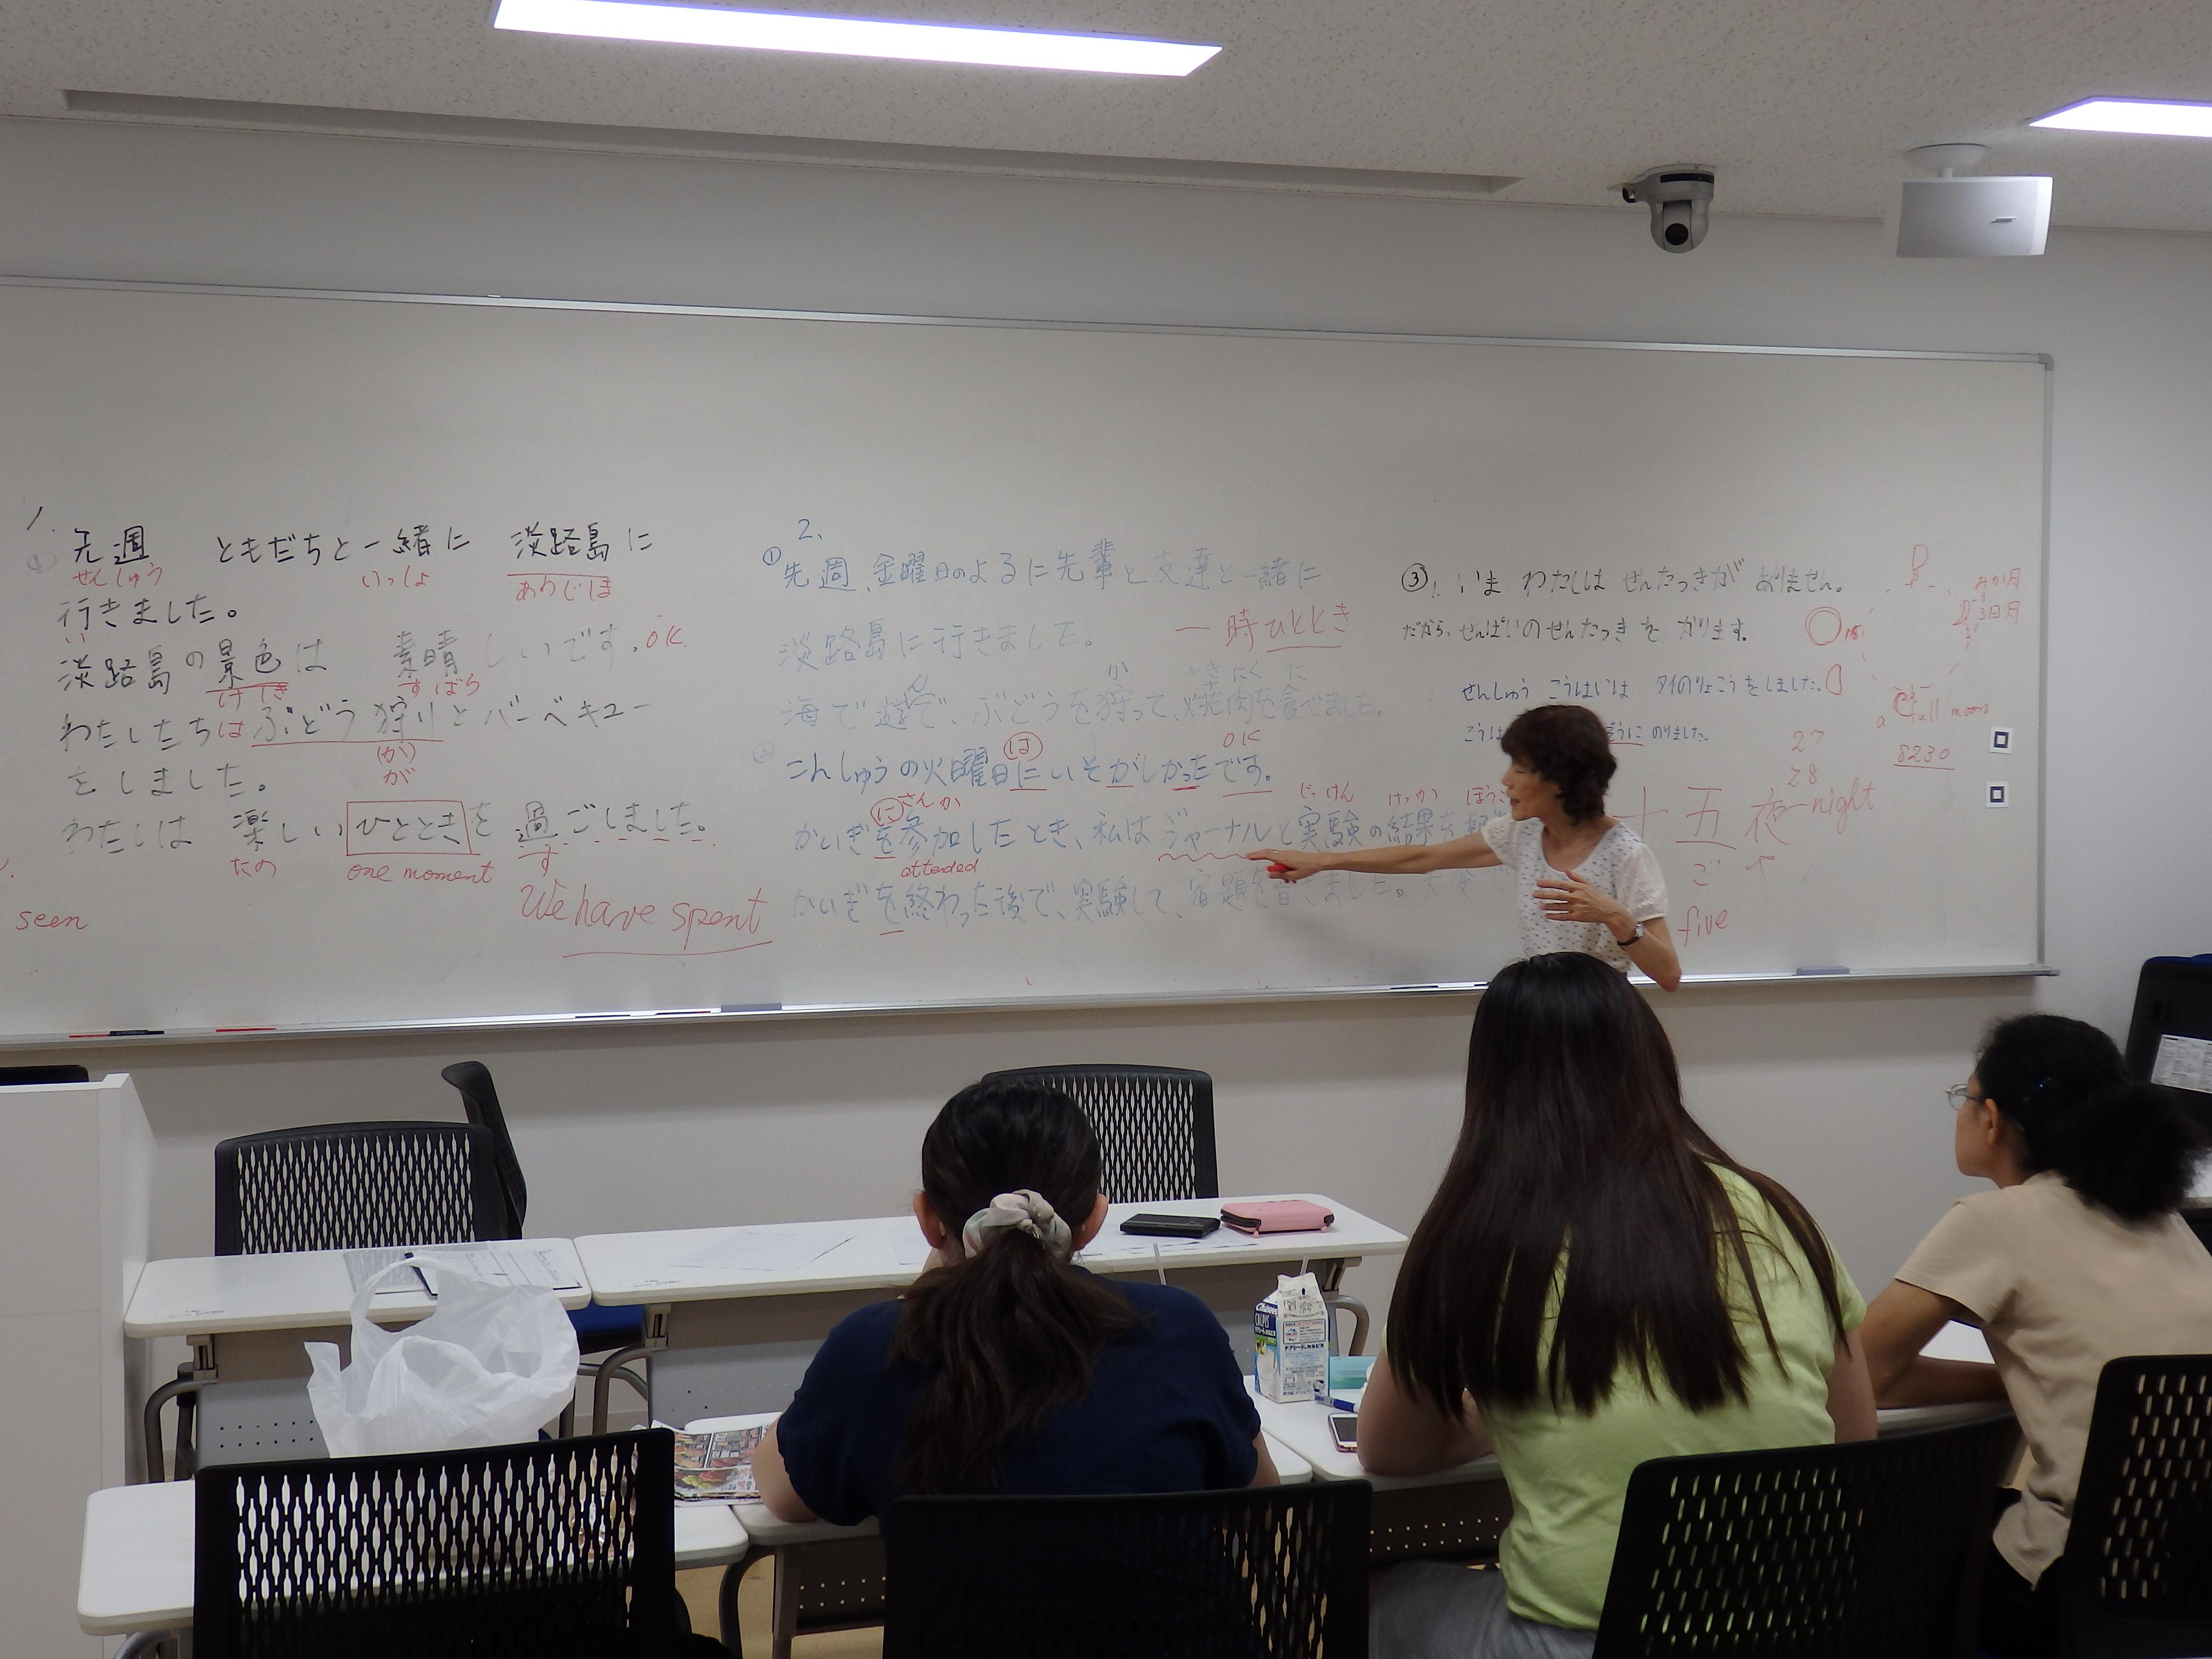 1.
先週 ともだちと一緒に 淡路島に
せんしゅう いっしょ あわじしま
行きました。
い
淡路島の景色は 素晴しいです。OK.
けしき すばら
わたしたちはぶどう狩りとバーベキュー
(か)
が
をしました。
わたしは 楽しいひとときを過ごしました。
たの one moment す
We have spent
seen
2.
① 先週、金曜日のよるに先輩と友達と一緒に
淡路島に行きました。
一時ひととき
か やきにく た
海で遊んで、ぶどうを狩って、焼肉を食べました。
は OK
② こんしゅうの火曜日にいそがしかったです。
に さんか じっけん けっか ほうこ
かいぎを参加したとき、私はジャーナルと実験の結果を
attended
かいぎを終わった後で、実験して、宿題を書きました。
③ 1. いま わたしは せんたっきが ありません。
だから、せんぱいのせんたっきを かります。
せんしゅう こうはいは タイのりょこうをしました。
こうは うに のりました。
みか月
3日月
15
full moon
27
28
8230
十五夜 night
ご や
five
CALPIS